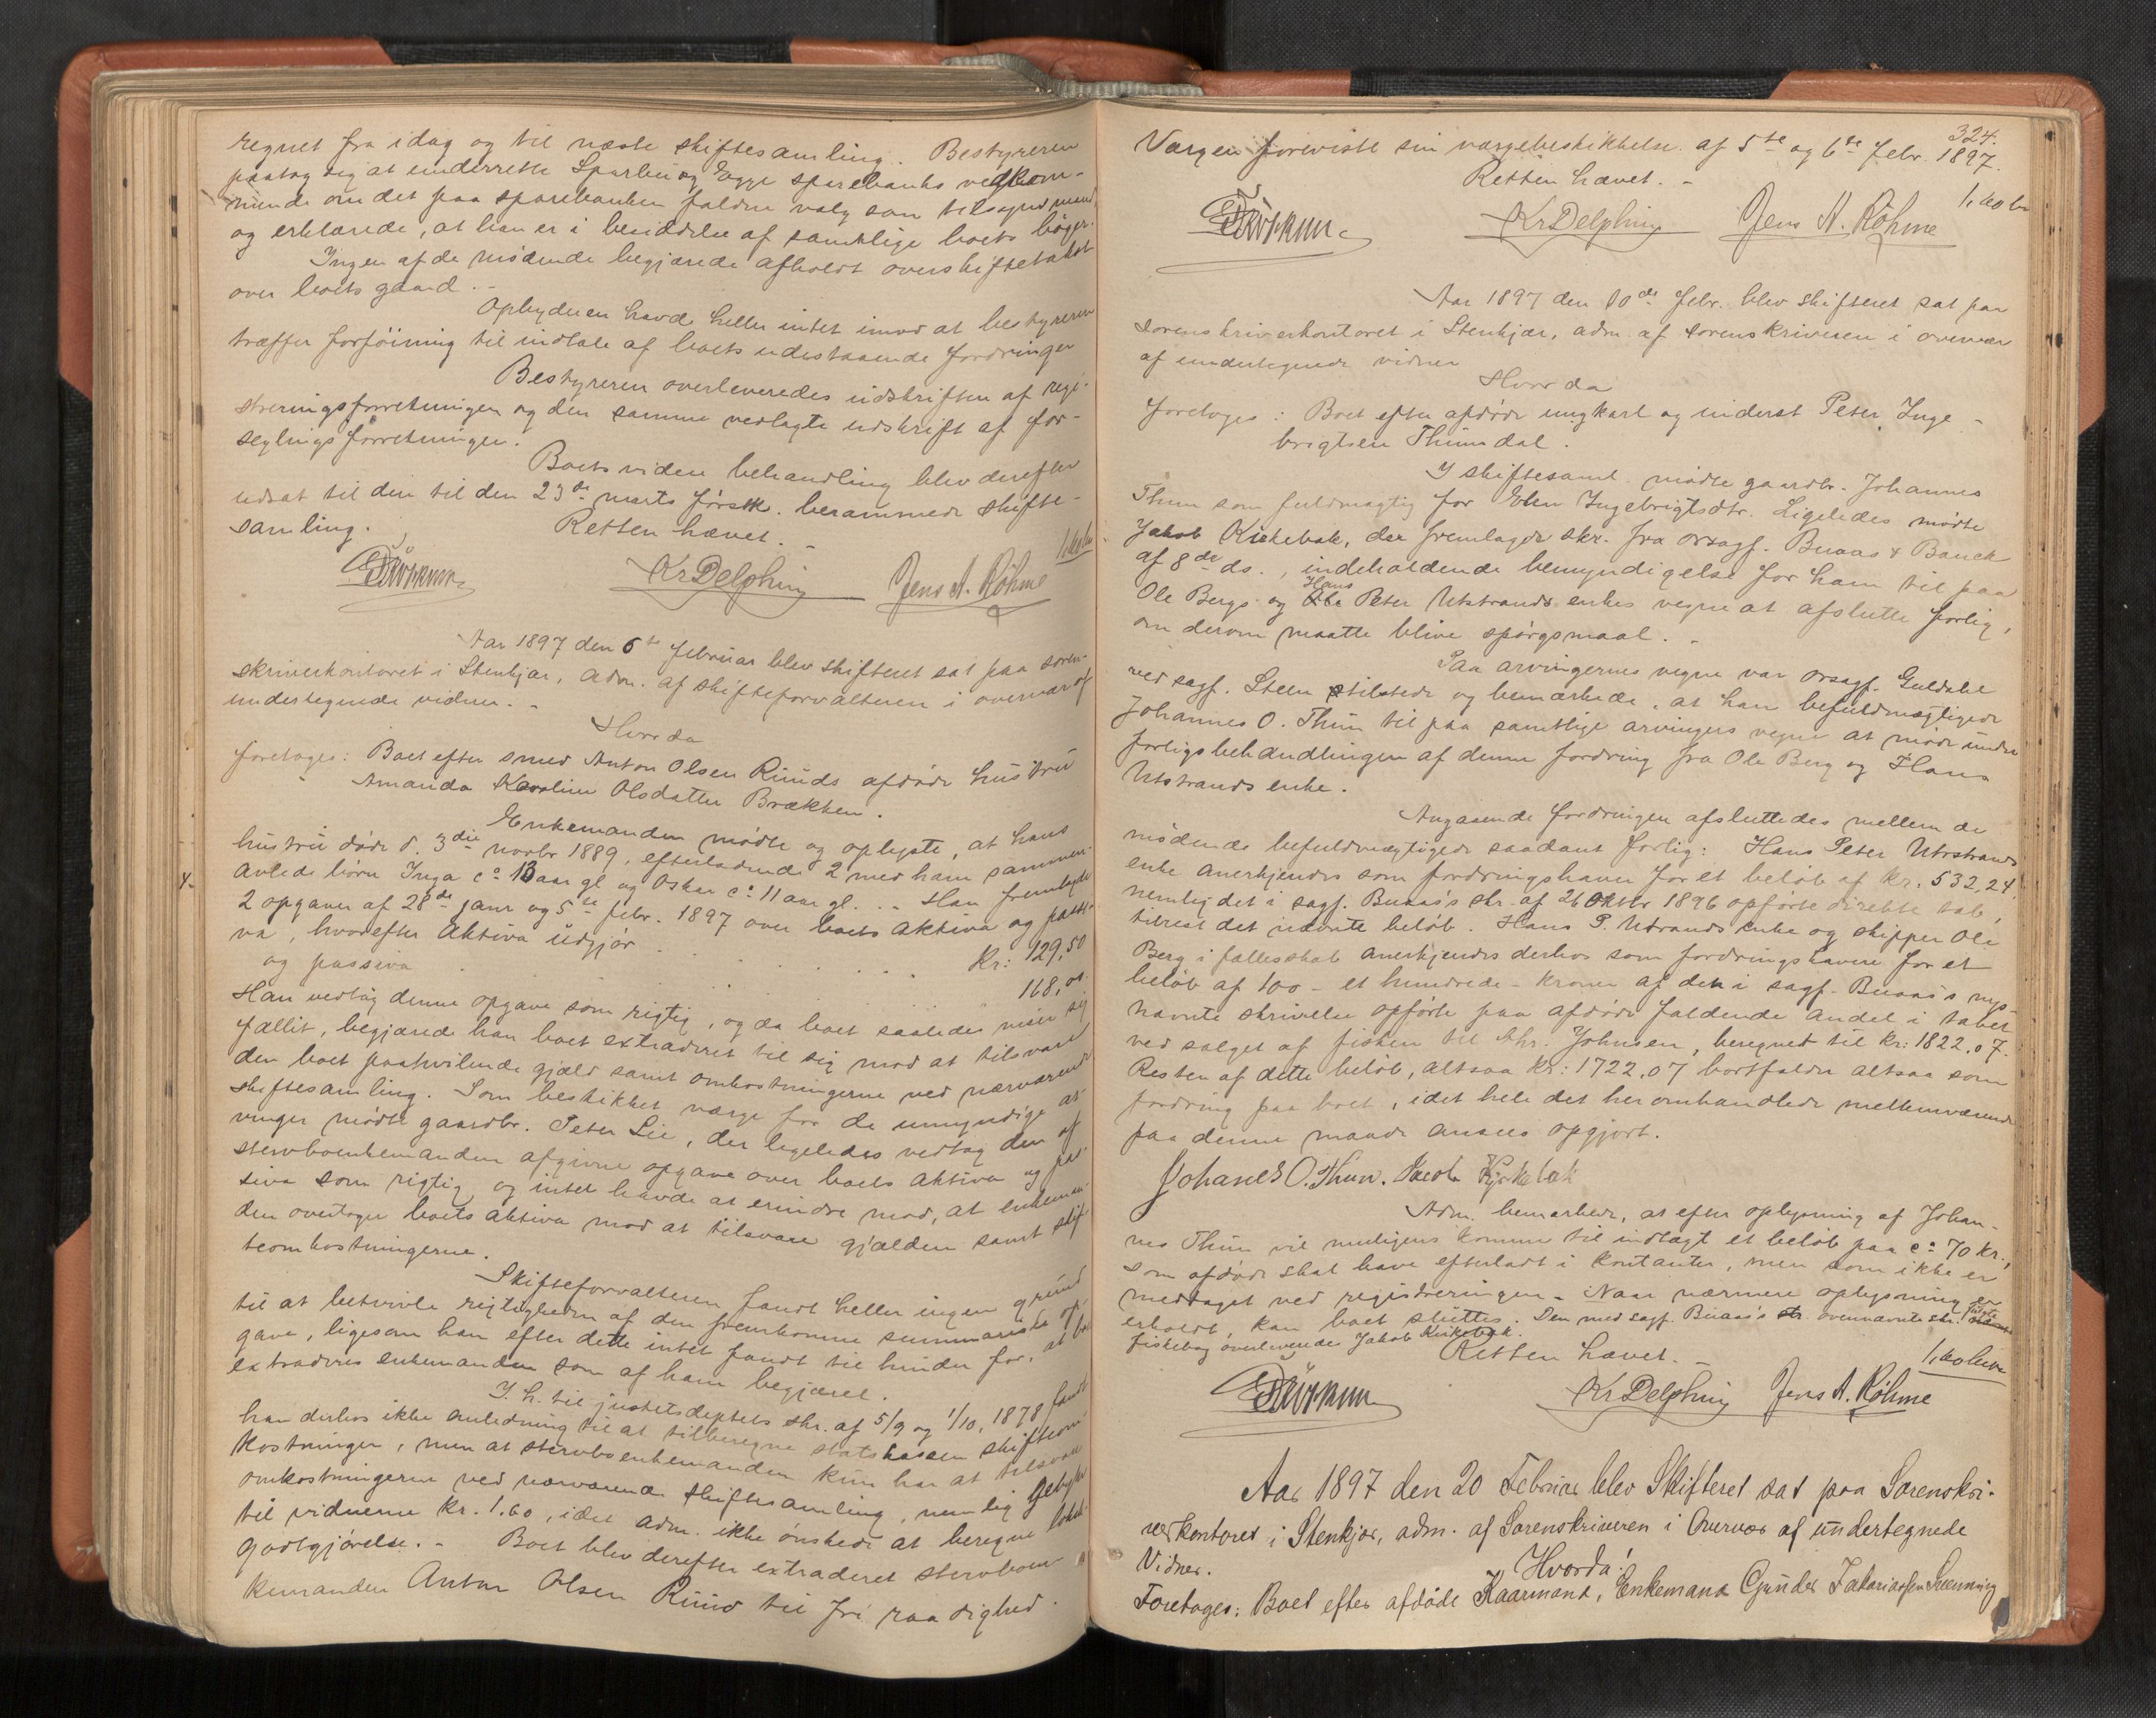 regnet fra idag og til næste skiftesamling. Bestyreren
paatog sig at underrette Sparbu og Egge sparebanks vedkom-
mende om det paa sparebanken faldne valg som tilsynsmand
og erklærede, at han er i besiddelse af samtlige boets bøger.
Ingen af de mødende begjærede afholdt overskiftetakst
over boets gaard. -
Opbyderen havde heller intet imod at bestyreren
træffer forføining til indtale af boets udestaaende fordringer
Bestyreren overleveredes udskriften af regi-
streringsforretningen og den samme vedlagte udskrift af for-
seglingsforretningen.
Boets videre behandling blev derefter
udsat til den til den 23de marts førstk. berammede skifte-
samling.
Retten hævet. -
KrDelphin Jens A. Röhme
Aar 1897 den 6te februar blev skifteret sat paa soren-
skriverkontoret i Stenkjær, adm. af skifteforvalteren i overvær af
undertegnede vidner. -
Hvor da
foretoges: Boet efter smed Anton Olsen Ruuds afdøde hustru
Amanda Karoline Olsdatter Brækken.
Enkemanden mødte og oplyste, at hans
hustru døde d. 3die novbr 1889, efterladende 2 med ham sammen-
avlede børn Inga ca 13 aar gl og Oskar ca 11 aar gl. .. Han fremlagde
4.
2 opgaver af 28de janr og 5te febr. 1897 over boets aktiva og passi-
va, hvorefter aktiva udgjør . . . . . . Kr: 129,50
og passiva . . . . . . . . 168,00
Han vedtog denne opgave som rigtig, og da boet saaledes viser sig
fallit, begjærede han boet extraderet til sig mod at tilsvare
den boet paahvilende gjæld samt omkostningerne ved nærværende
skiftesamling. Som beskikket værge for de umyndige ar-
vinger mødte gaardbr. Peter Lie, der ligeledes vedtog den af
stervboenkemanden afgivne opgave over boets aktiva og pas-
siva som rigtig og intet havde at erindre mod, at enkeman-
den overtager boets aktiva mod at tilsvare gjælden samt skif-
teomkostningerne.
Skifteforvalteren fandt heller ingen grund
til at betvivle rigtigheden af den fremkomne summariske op-
gave, ligesom han efter dette intet fandt til hinder for, at bo
extraderes enkemanden som af ham begjæret.
I h. til justitsdeptets skr. af 5/9 og 1/10, 1878 fandt
han derhos ikke anledning til at tilberegne statskassen skifteom-
kostninger, men at stervboenkemanden kun har at tilsvare
omkostningerne ved nærværende skiftesamling, nemlig gebyr
til vidnerne Kr. 1.60, idet adm. ikke ønskede at beregne
godtgjørelse. - Boet blev derefter extraderet stervboen-
kemanden Anton Olsen Ruud til fri raadighed.
324.
Værgen foreviste sin værgebeskikkelse af 5te og 6te febr. 1897.
Retten hævet. -
KrDelphin Jens A. Röhme
Aar 1897 den 10de febr. blev skifteret sat paa
sorenskriverkontoret i Stenkjær, adm. af sorenskriveren i overvær
af undertegnede vidner
Hvor da
foretoges: Boet efter afdøde ungkarl og inderst Peter Inge-
brigtsen Thunsdal.
I skiftesaml. mødte gaardbr. Johannes
Thun som fuldmægtig for Elen Ingebrigtsdtr. Ligeledes mødte
Jakob Kirkebak, der fremlagde skr. fra orsagf. Buaas & Bauck
af 8de ds., indeholdende bemyndigelse for ham til paa
Ole Bergs og Hans Peter Utstrands enkes vegne at afslutte forlig,
om derom maatte blive spørgsmaal. -
Paa arvingernes vegne var orsagf. Guldahl
ved sagf. Steen tilstede og bemærkede, at han befuldmægtigede
Johannes O. Thun til paa samtlige arvingers vegne at møde under
forligsbehandlingen af denne fordring fra Ole Berg og Hans
Utstrands enke.
Angaaende fordringen afsluttedes mellem de
mødende befuldmægtigede saadant forlig: Hans Peter Utstrands
enke anerkjendes som fordringshaver for et beløb af Kr. 532,24,
nemlig det i sagf. Buaas's skr. af 26 Oktbr 1896 opførte direkte tab,
tilrest det nævnte beløb. Hans P. Utstrands enke og skipper Ole
Berg i fællesskab anerkjendes derhos som fordringshavere for et
beløb af 100 - et hundrede - kroner af den i sagf. Buaas's nys-
nævnte skrivelse opførte paa afdøde faldende andel i tabet
ved salget af fisken til Chr. Johnsen, beregnet til Kr: 1822,07.
Resten af dette beløb, altsaa Kr: 1722,07 bortfalder altsaa som
fordring paa boet, idet hele det her omhandlede mellemværende
paa denne maade ansees opgjort.
Johanes O. Thun. Jacob Kjrkebak
Adm. bemærkede, at efter oplysning af Johan-
nes Thun vil muligens komme til indtægt et beløb paa ca 70 kr.,
som afdøde skal have efterladt i kontanter, men som ikke er
medtaget ved registreringen. - Naar nærmere oplysning er
erholdt, kan boet sluttes. Den med sagf. Buaas's ovennævnte skr.
fiskebog overleveredes Jakob Kirkebak.
Retten hævet. -
KrDelphin Jens A. Röhme
Aar 1897 den 20 Februar blev Skifteret sat paa Sorenskri-
verkontoret i Stenkjær, adm. af Sorenskriveren i Overvær af undertegnede
Vidner.
Hvorda!
Foretoges: Boet efter afdøde Kaarmand, Enkemand Gunder Zakariassen